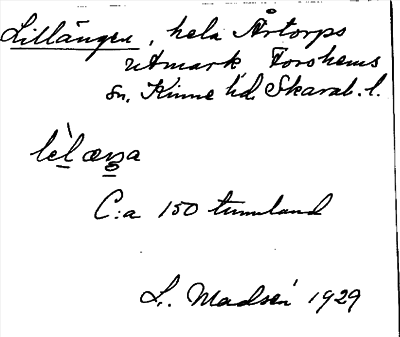 Lillängen, hela Årtorps
utmark Forshems
sn. Kinne hd. Skarab. l.
lèlæŋa
C:a 150 tunnland
L. Madsén 1929